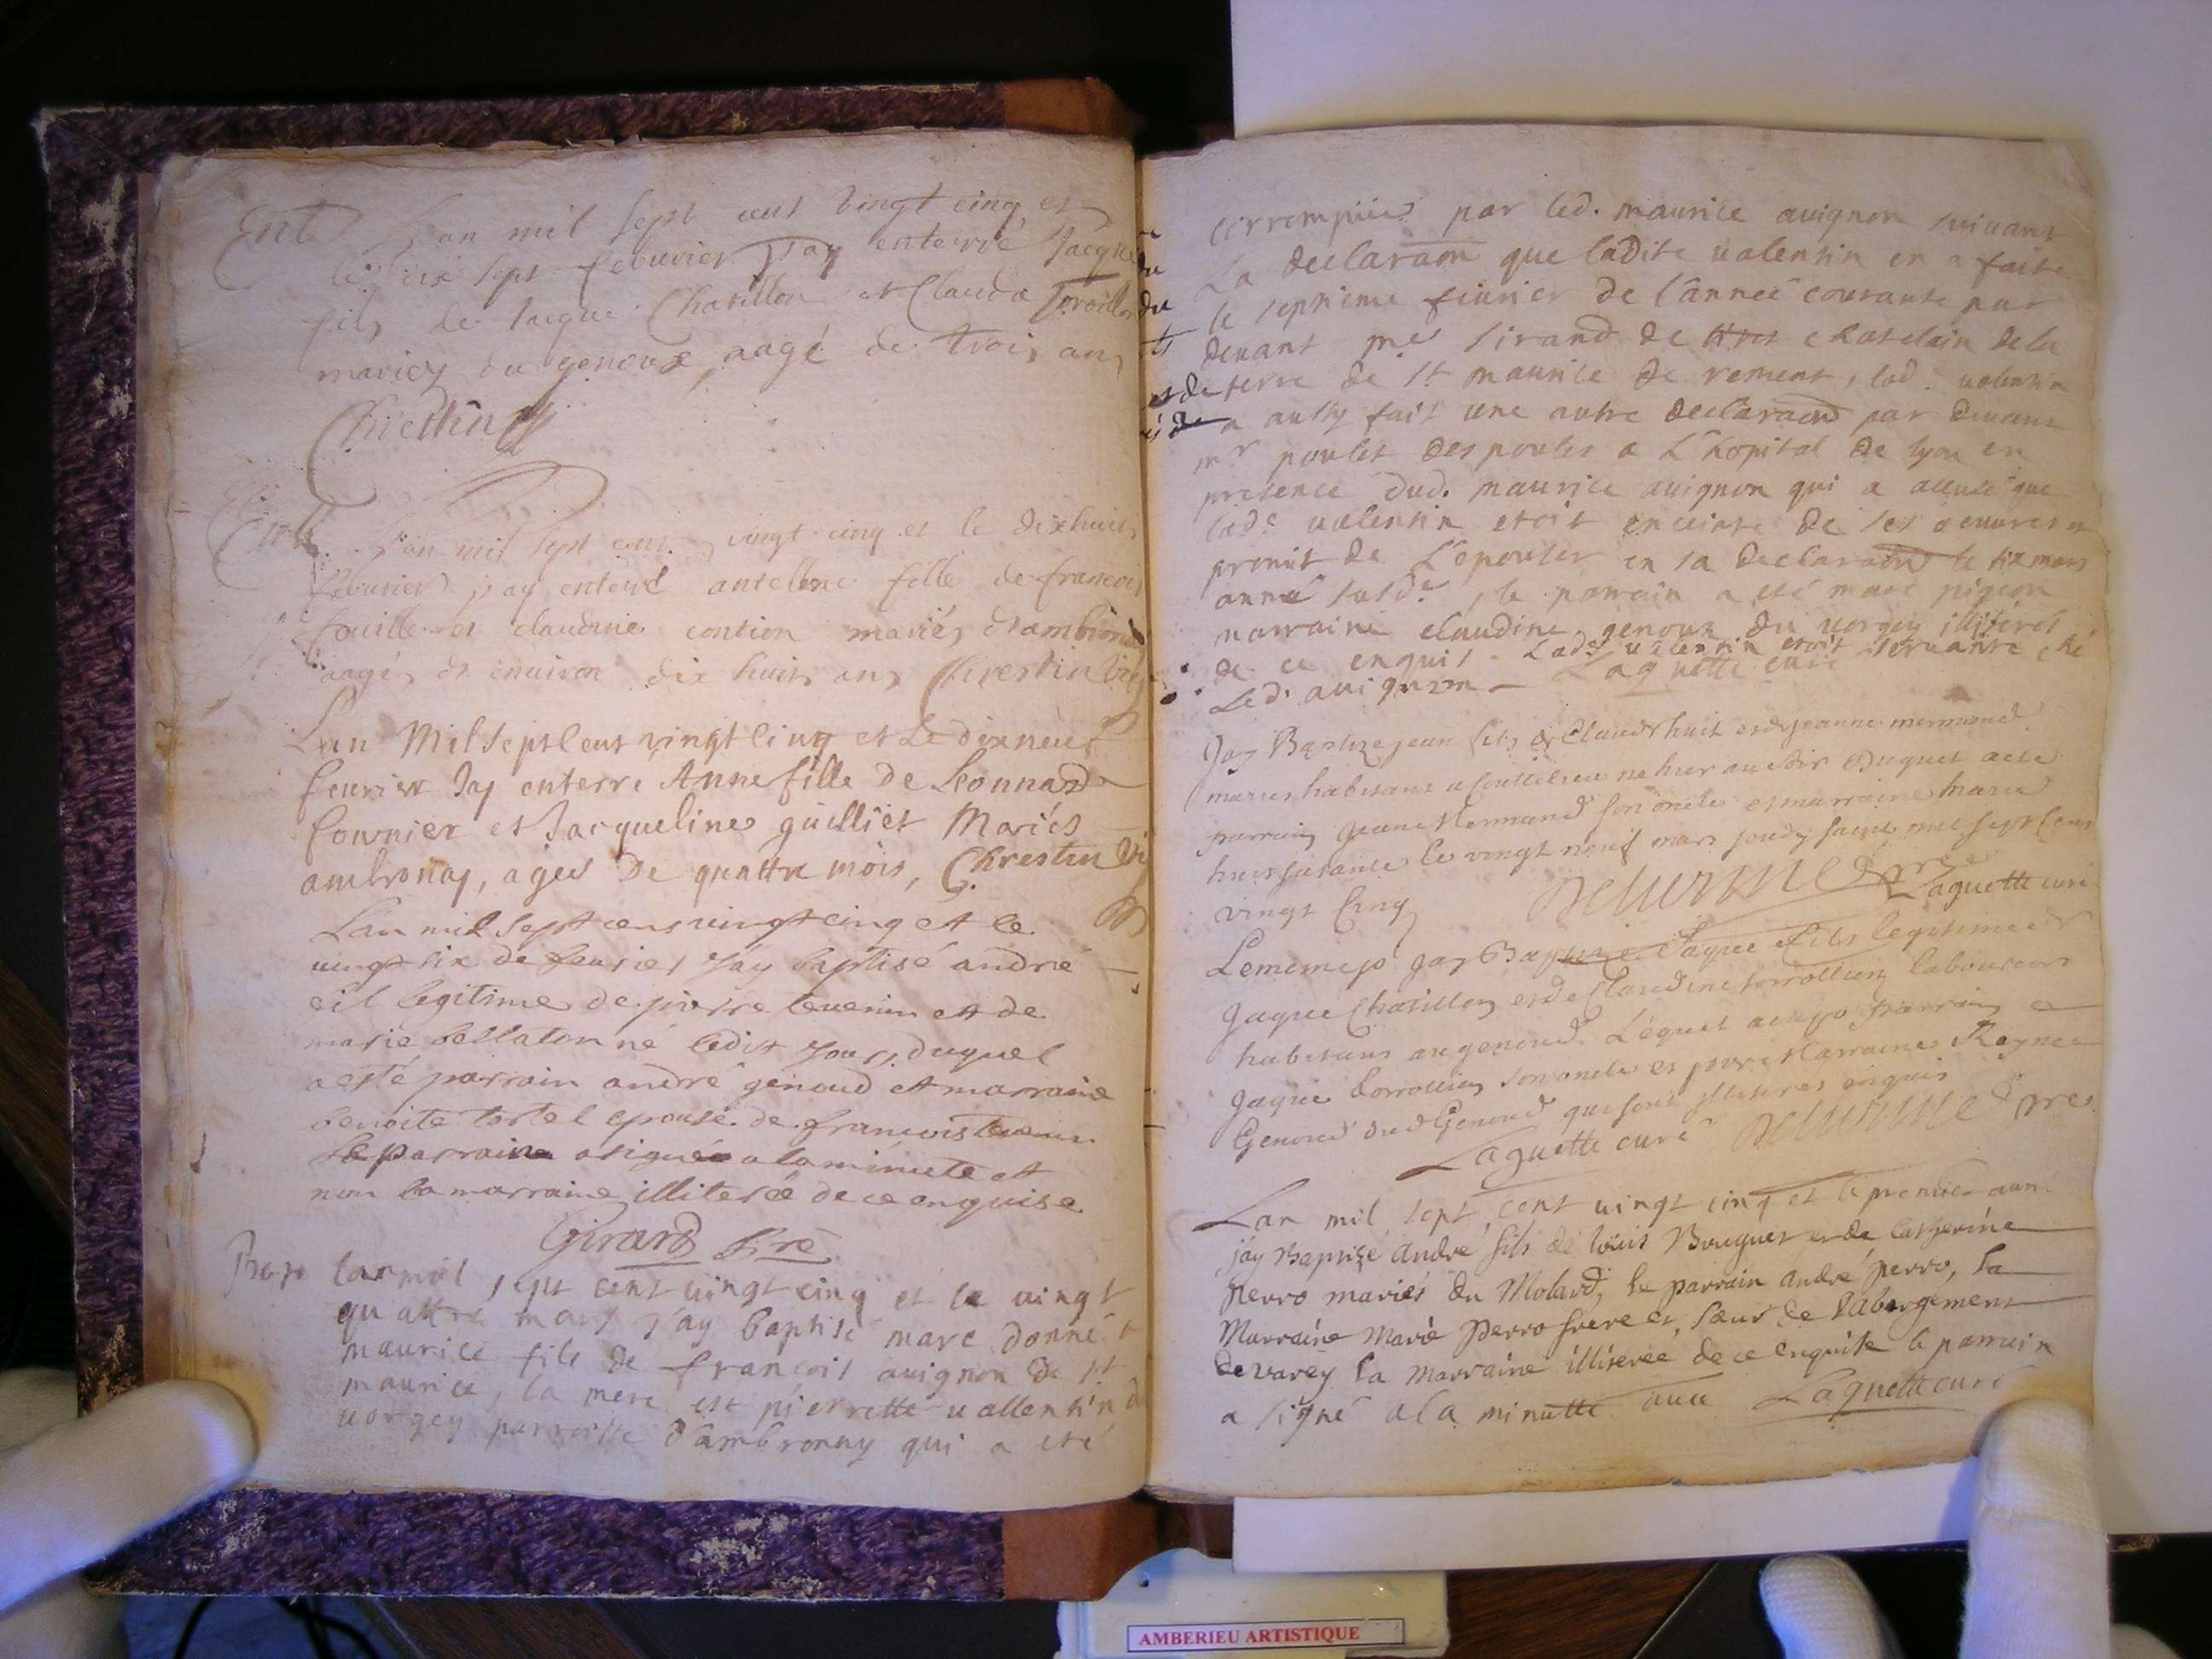 Ent
L'an mil sept cent vingt cinq et
le dix sept febuvrier j'ay enterré Jacque
fils de Jacque Chatillon et Clauda
mariez du genoux, aagé de trois ans
Chrestin
Ent
L'an mil sept cent vingt cinq et le dixhuit
febuvrier j'ay enterré antelme fille de francois
et claudine mariés d'ambronay
aagé d'environ dix huit ans Chrestin vic
L'an Mil sept Cent vingt Cinq et Le dixneuf
feuvrier Jay enterre Anne fille De Leonnard
fournier et Jacqueline guilliet Mariés
ambronay, agee De quattre mois, Chrestin vi
L'an mil sept cens vingt cinq et le
vingt six de feuvrier J'ay baptisé andré
fil legitime de pierre tevenin et de
marie bellaton né ledit Jour, duquel
a esté parrain andré genoud et marraine
benoite tortel epouse de francois tevenin
Le parrain a signé a la minute et
non la marraine illiterée de ce enquise
Girard Pre
Bap
L'an mil sept cent vingt cinq et le vingt
quattre mars j'ay baptisé marc donné a
maurice fils de francois avignon de st
maurice, la mere est pierrette vallentin du
vorgey parroisse d'ambronay qui a eté
corrompüe par led. maurice avignon suivant
La declaraon que ladite valentin en a faite
le septieme fevrier de l'anneé courante par
devant me sirand de chatelain de la
terre de st maurice de rement, lad. valentin
a aussy fait une autre declaraon par devant
mr poulet des poules a L'hopital de lyon en
presence dud. maurice avignon qui a accusé que
lade valentin etoit enceinte de ses oeuvres et
promit de L'epouser en sa declaraon le six mars
année susde, le parrain a eté marc pigeon
marraine claudine genoux du vorgey illiterés
de ce enquis. Lade valentin etoit servante ché
Led. avignon — Laguette curé
Jay Baptize jean fils de Claude huit et de jeanne mermand
maries habitans a né hier au soir Duquel a eté
parrain Jeane Mermand son oncle et marraine marie
huit sa tante le vingt neuf mars jeudy saint mil sept Cent
vingt Cinq
Laguette curé
Le meme jo Jay Baptize Jaque fils legitime de
Jaque Chatillon et de Claudine laboureurs
habitans au genoud. Lequel a eu po parrain
Jaque son oncle et pour Marraine Reynee
Genoud dud Genoud qui sont illiteres enquis
Laguette curé pre
L'an mil sept cent vingt cinq et le premier avril
j'ay Baptizé andré fils de loüis Bouguet et de Catherine
perro mariés du Molard, le parrain andré perro, la
Marraine Marie perro frere et sœur de l'abergement
de varey la Marraine illiterée de ce enquise le parrain
a signé a la minutte avec Laguette curé
AMBERIEU ARTISTIQUE